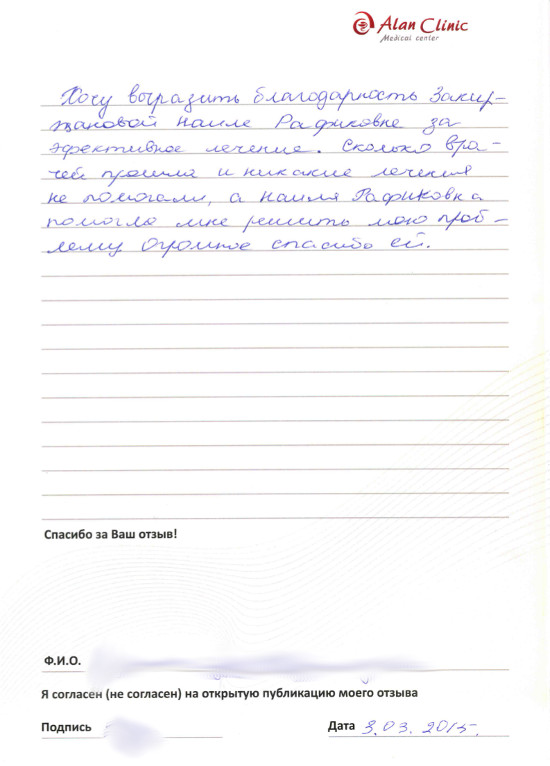 Alan Clinic
Medical center
Хочу выразить благодарность Закир-
жановой Наиле Рафиковне за
эфективное лечение. Сколько вра-
чей прошла и никакие лечения
не помогали, а Наиля Рафиковна
помогла мне решить мою проб-
лему Огромное спасибо ей.
Спасибо за Ваш отзыв!
Ф.И.О.
Я согласен (не согласен) на открытую публикацию моего отзыва
Подпись Дата 3.03.2015.